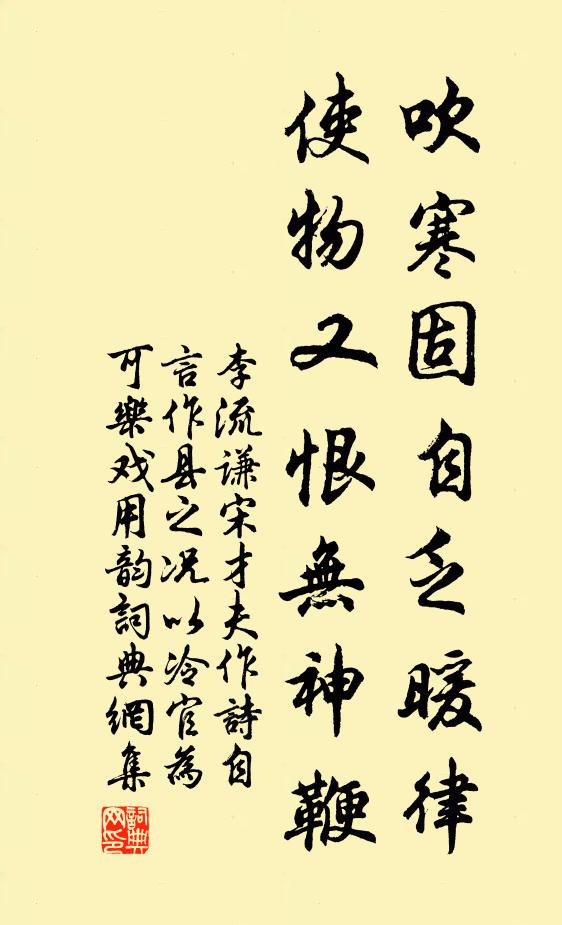 吹寒固自乏暖律
使物又恨無神鞭
李流谦宋才夫作詩自
言作县之况以冷官為
可樂戏用韵詞典網集
詞典網印